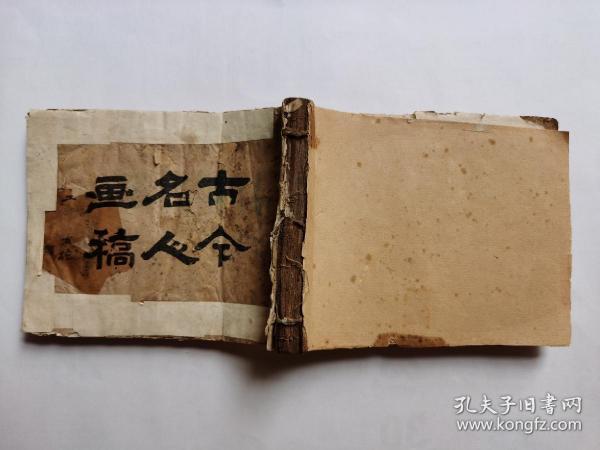 古今
名人
画稿
孔夫子旧书网
www.kongfz.com